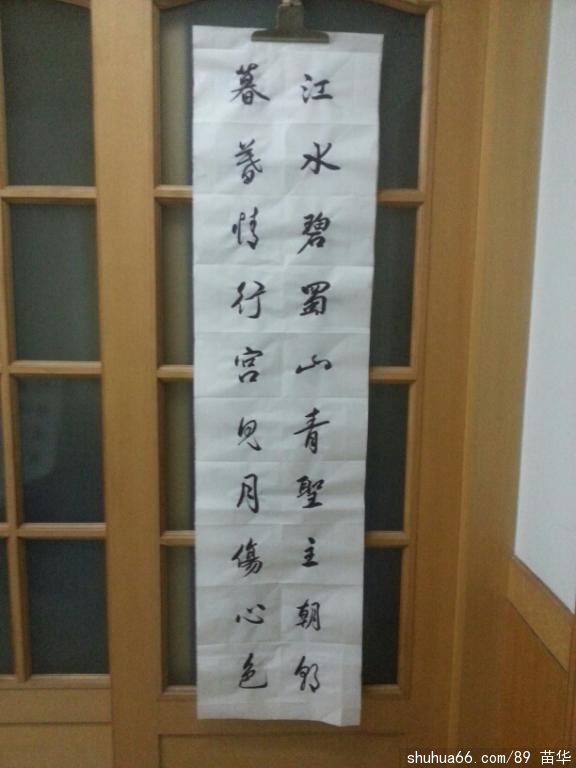 江水碧蜀山青聖主朝朝
暮暮情行宮見月傷心色
shuhua66.com/89 苗华